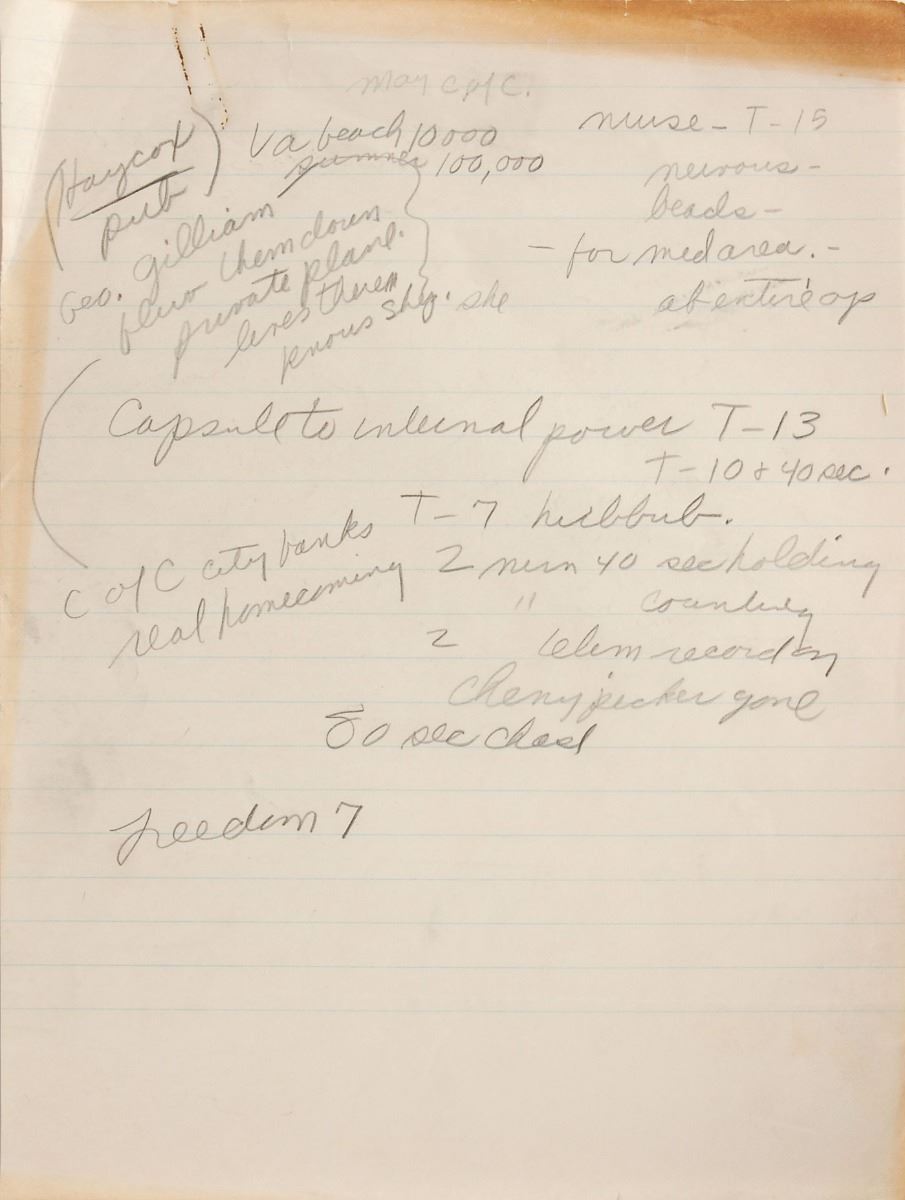 May C of C.
(Haycox)
pub
Va beach 10000
summer 100,000
nurse - T-15
nervous -
beads -
- for med area. -
at entire op
Geo. Gilliam
flew them down
private plane.
lives there
knows Shep. she
Capsule to internal power T-13
T-10 & 40 sec.
T-7 hubbub.
C of C city banks
real homecoming
2 min 40 sec holding
" counting
2 telem record on
Cherry picker gone
80 sec
Freedom 7